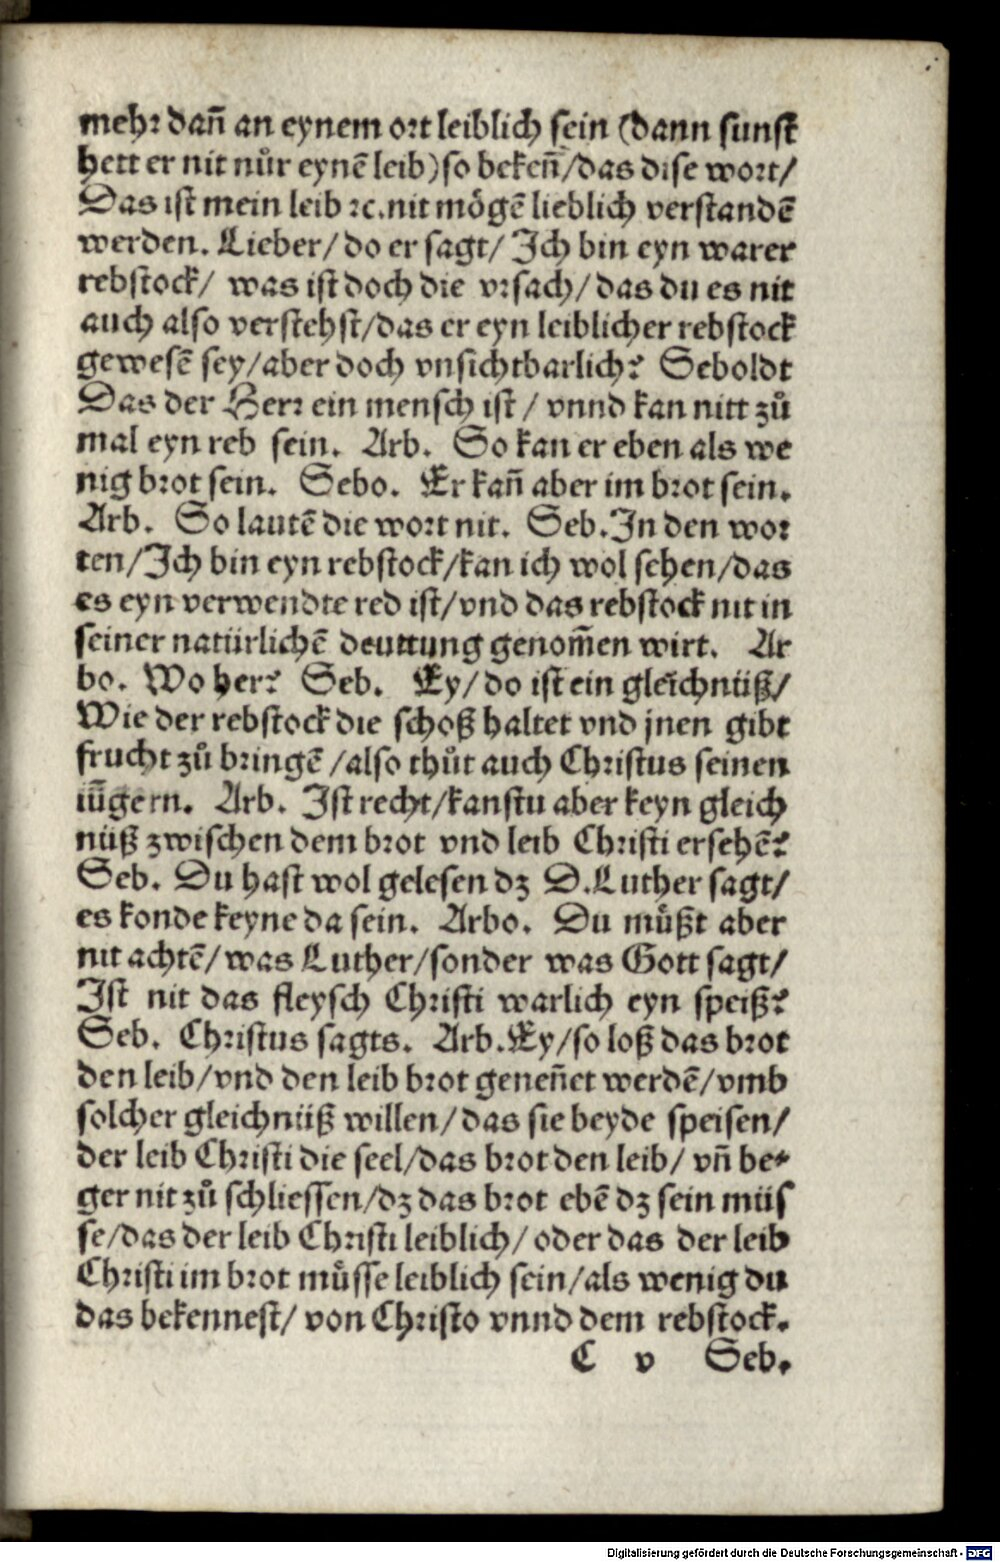 mehr dañ an eynem ort leiblich sein (dann sunst
hett er nit nůr eynē leib) so bekeñ/das dise wort/
Das ist mein leib ⁊c. nit mögē lieblich verstandē
werden. Lieber/do er sagt/Ich bin eyn warer
rebstock/ was ist doch die vrsach/das du es nit
auch also verstehst/das er eyn leiblicher rebstock
gewesē sey/aber doch vnsichtbarlich? Seboldt
Das der Herr ein mensch ist/ vnnd kan nitt zů
mal eyn reb sein. Arb. So kan er eben als we
nig brot sein. Sebo. Er kañ aber im brot sein.
Arb. So lautē die wort nit. Seb. In den wor
ten/Ich bin eyn rebstock/kan ich wol sehen/das
es eyn verwendte red ist/vnd das rebstock nit in
seiner natürlichē deuttung genom̄en wirt. Ar
bo. Wo her? Seb. Ey/do ist ein gleichnüß/
Wie der rebstock die schoß haltet vnd jnen gibt
frucht zů bringē/also thůt auch Christus seinen
iüngern. Arb. Ist recht/kanstu aber keyn gleich
nüß zwischen dem brot vnd leib Christi ersehē?
Seb. Du hast wol gelesen dz D. Luther sagt/
es konde keyne da sein. Arbo. Du můßt aber
nit achtē/was Luther/sonder was Gott sagt/
Ist nit das fleysch Christi warlich eyn speiß?
Seb. Christus sagts. Arb. Ey/so loß das brot
den leib/vnd den leib brot geneñet werdē/vmb
solcher gleichnüß willen/das sie beyde speisen/
der leib Christi die seel/das brot den leib/ vñ be-
ger nit zů schliessen/dz das brot ebē dz sein müs
se/das der leib Christi leiblich/oder das der leib
Christi im brot můsse leiblich sein/als wenig du
das bekennest/von Christo vnnd dem rebstock.
C v Seb.
Digitalisierung gefördert durch die Deutsche Forschungsgemeinschaft - DFG